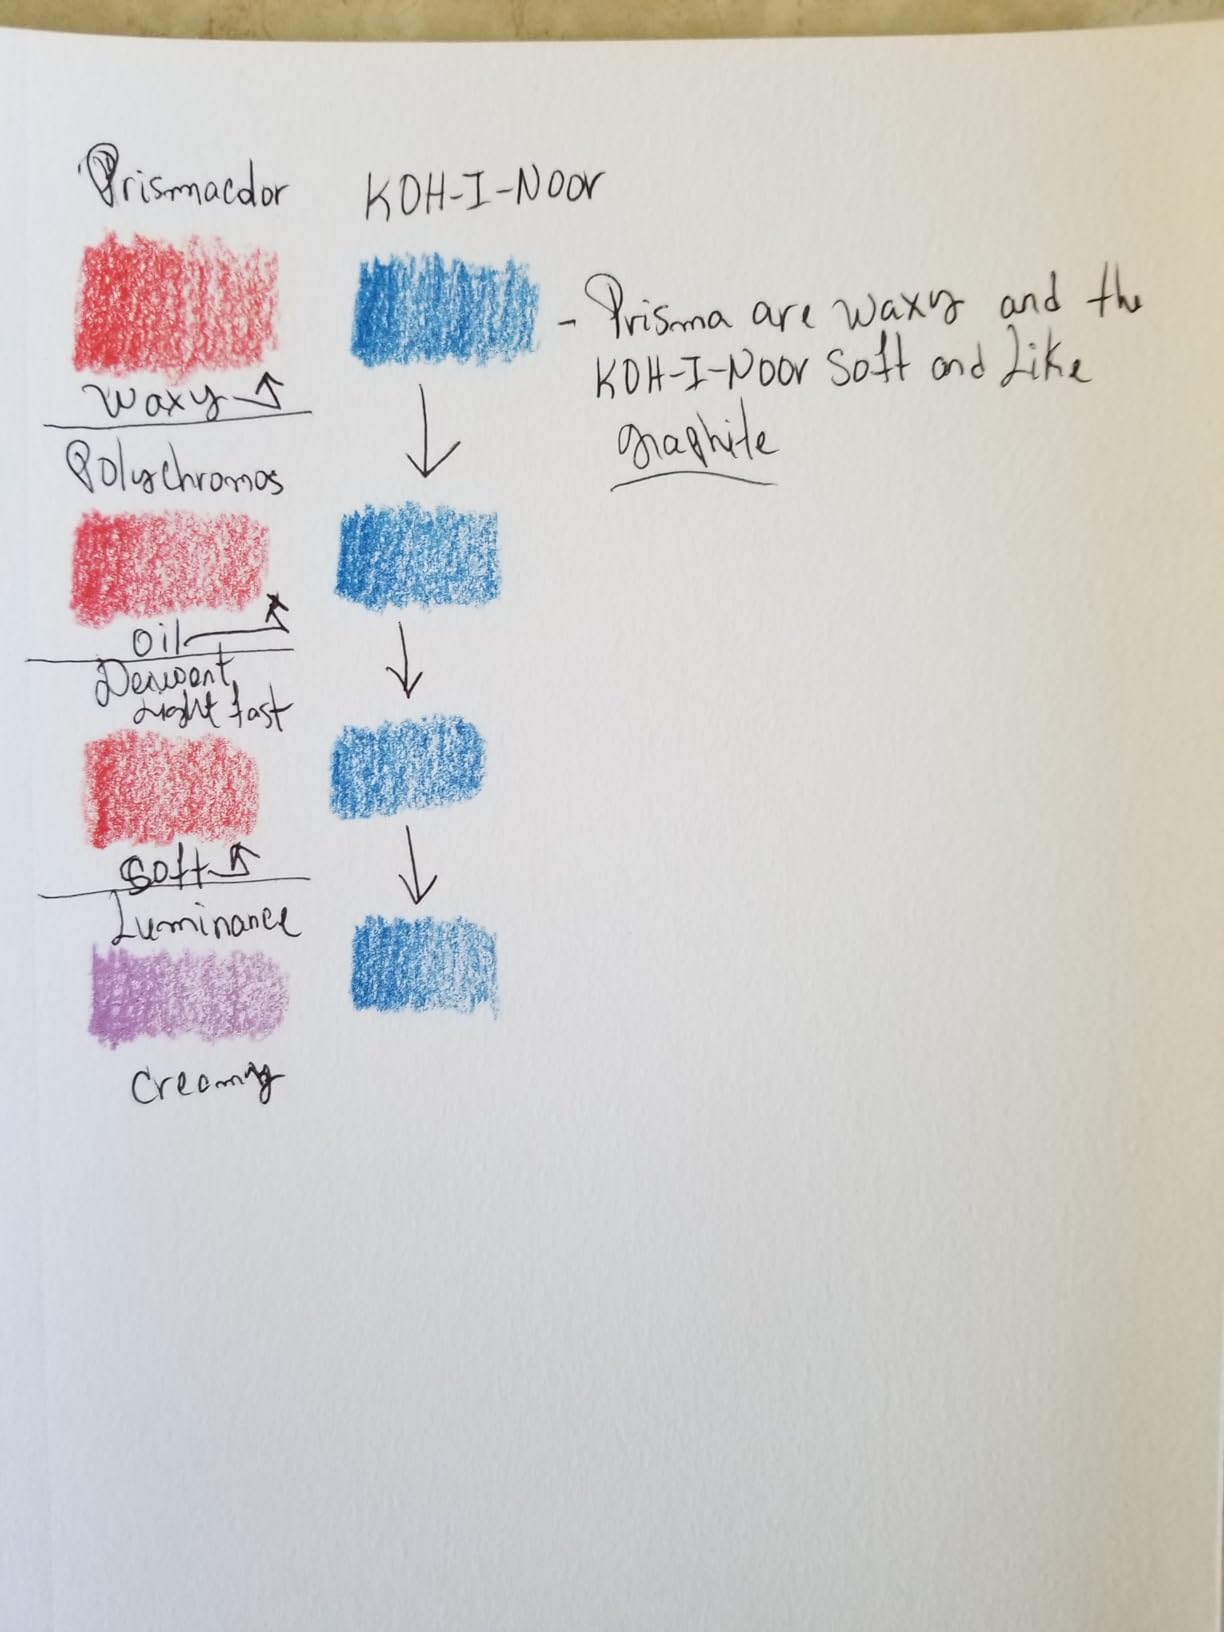 Prismacolor KOH-I-NOOR
- Prisma are waxy and the
KOH-I-NOOR Soft and Like
graphite
Waxy
Polychromos
Oil
Derwent
Lightfast
Soft
Luminance
Creamy